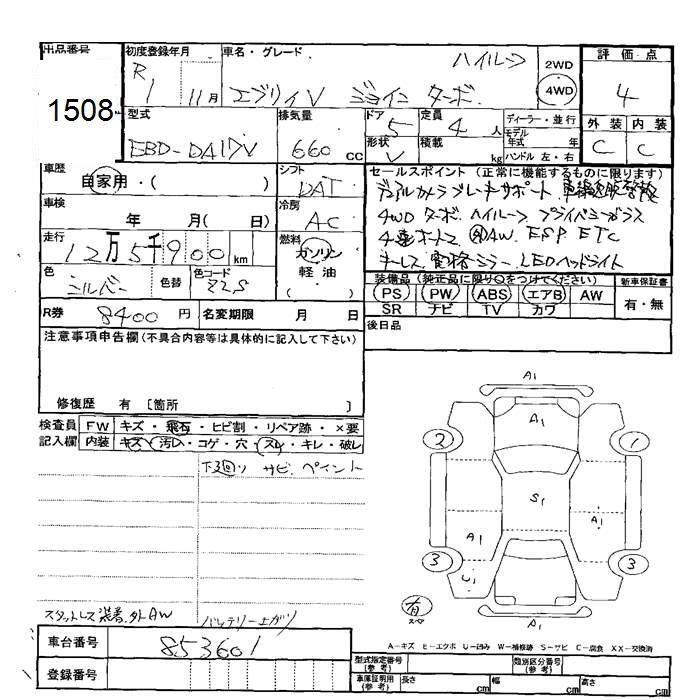 出品番号 初度登録年月 車名・グレード 評価点
1508 R1 11月 エブリイV ジョイン ターボ ハイルーフ 2WD 4WD 4
型式 排気量 ドア 定員 ディーラー・並行 外装 内装
EBD-DA17V 660cc 5 4人 モデル年式 年 C C
形状 V 積載 kg ハンドル 左・右
車歴 シフト セールスポイント (正常に機能するものに限ります)
自家用・( ) DAT デュアルカメラブレーキサポート
車検 冷房 4WD ターボ ハイルーフ プライバシーガラス
年 月( 日) AC AW ESP ETC
走行 燃料 キーレス 電格ミラー LEDヘッドライト
12万5千900km ガソリン 軽油 ( )
色 色替 色コード 装備品 (純正品に限り○をつけてください) 新車保証書
シルバー Z2S PS PW ABS エアB AW 有・無
SR ナビ TV カワ
R券 8400円 名変期限 月 日 後日品
注意事項申告欄 (不具合内容等は具体的に記入して下さい)
修復歴 有 [箇所 ]
検査員 FW キズ・飛石・ヒビ割・リペア跡・×要
記入欄 内装 キズ・汚レ・コゲ・穴・スレ・キレ・破レ
下廻り サビ、ペイント
A1
A1
2 1
S1
A1
A1
3 3
U1
有
スペア
A1
スタットレス装着、外AW バッテリー上がり
A−キズ E−エクボ U−凹み W−補修跡 S−サビ C−腐食 XX−交換済
車台番号 853601
登録番号
型式指定番号(参考) 類別区分番号(参考)
車庫証明用(参考) 長さ cm 幅 cm 高さ cm